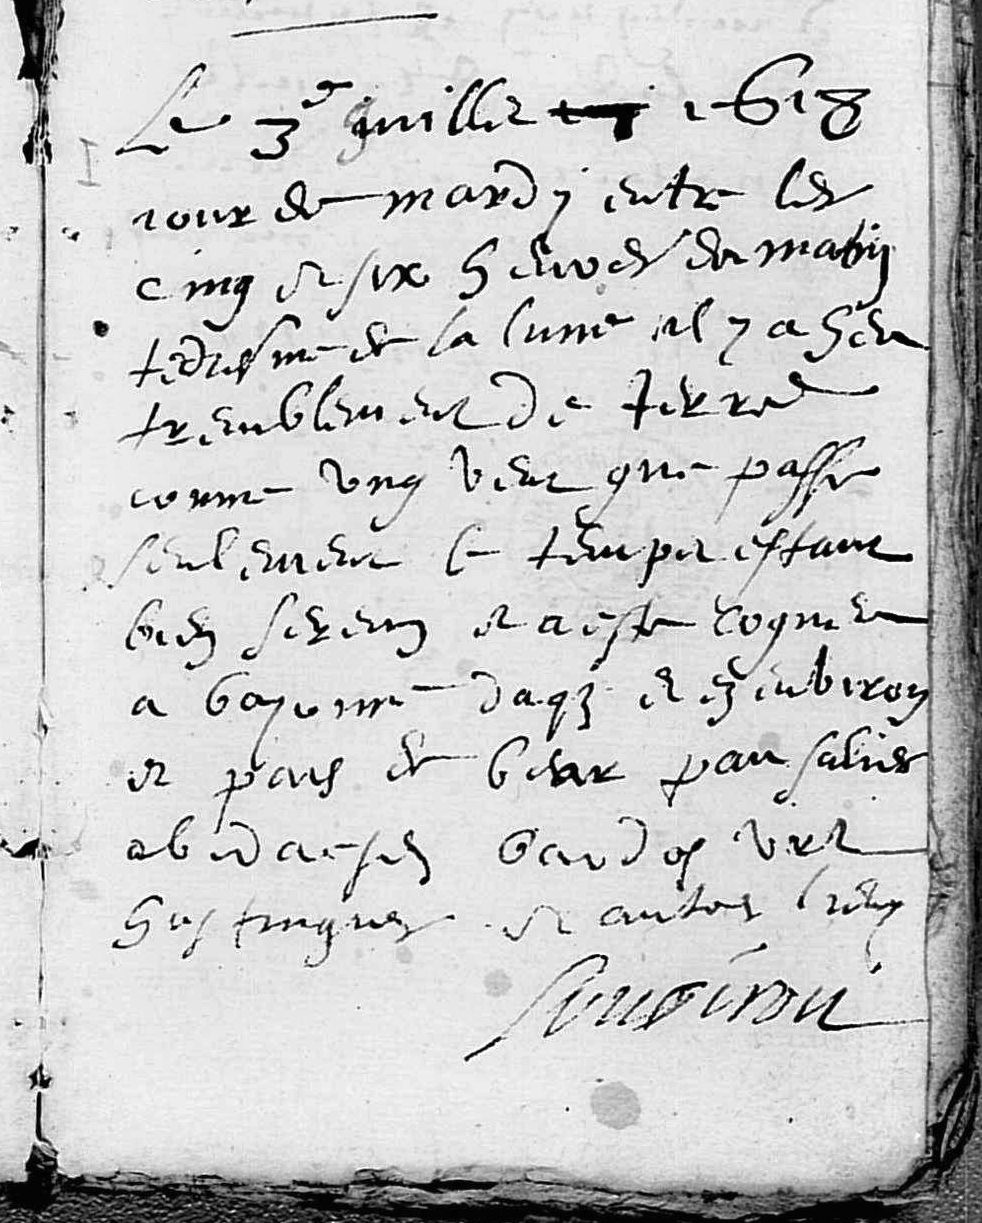 Le 3e juillet 1618
jour de mardy entre les
cinq et six heures de matin
de la lune il y a heu
tremblement de terre
comme ung vent que passe
seulement le temps estant
bien serein et a esté cogneu
a bayonne daqs et es environ
et pais de bear pau salies
abidaesen bardos urt
hastingues et autres lieux